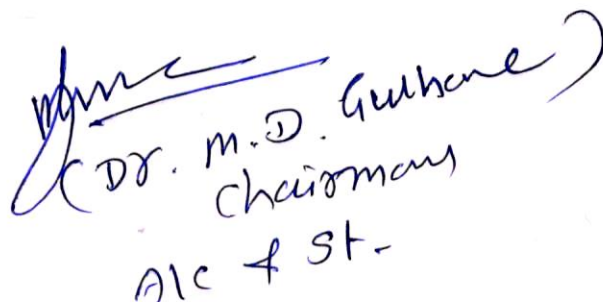 (Dr. M.D. Gulhane)
Chairman
A/c & St.